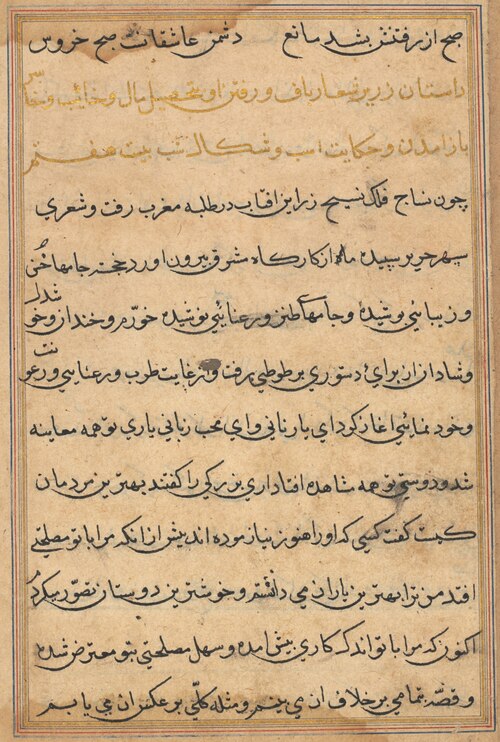 صبح از رفتنش بشد مانع دشمن عاشقانت صبح خروس
داستان زریر شعرباف و رفتن او بتحصیل مال و خائب و خاسر
باز آمدن و حکایت اسب و شکال شب بیست هفتم
چون نساج فلک نسیج زرین افتاب در طبله مغرب رفت و شعری
سپهر حریر سپیده ماه از کارکاه مشرق بیرون اورد خجسته جامهاء خزّ
و زیبائی پوشیده و جامهاء طنز و رعنائی پوشیده و خورّم و خندان و خوشدل
و شادان از برای دستوری بر طوطی رفت و از غایت طرب و رعنایی و رعونت
و خود نمائی اغاز کرد ای یار نانی و ای محب زبانی یاری تو همه معاینه
شد و دوستی تو همه مشاهده افتاد اری بزرکی را کفتند بهترین مردمان
کیست کفت کسی که او را هنوز نیازموده اند پیش از انکه مرا با تو مصلحتی
افتد من ترا بهترین یاران می دانستم و خوشترین دوستان تصوّر میکردم
اکنون که مرا با تو اندک کاری پیش امده و سهل مصلحتی بتو معترض شده
و قصّه بتمامی بر خلاف ان می بینم و مثله کلّی بر عکس ان می یابم